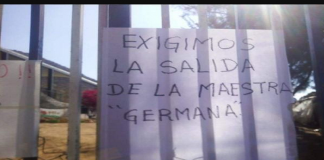 O!!
EXIGIMOS
LA SALIDA
DE LA MAESTRA
"GERMANA"